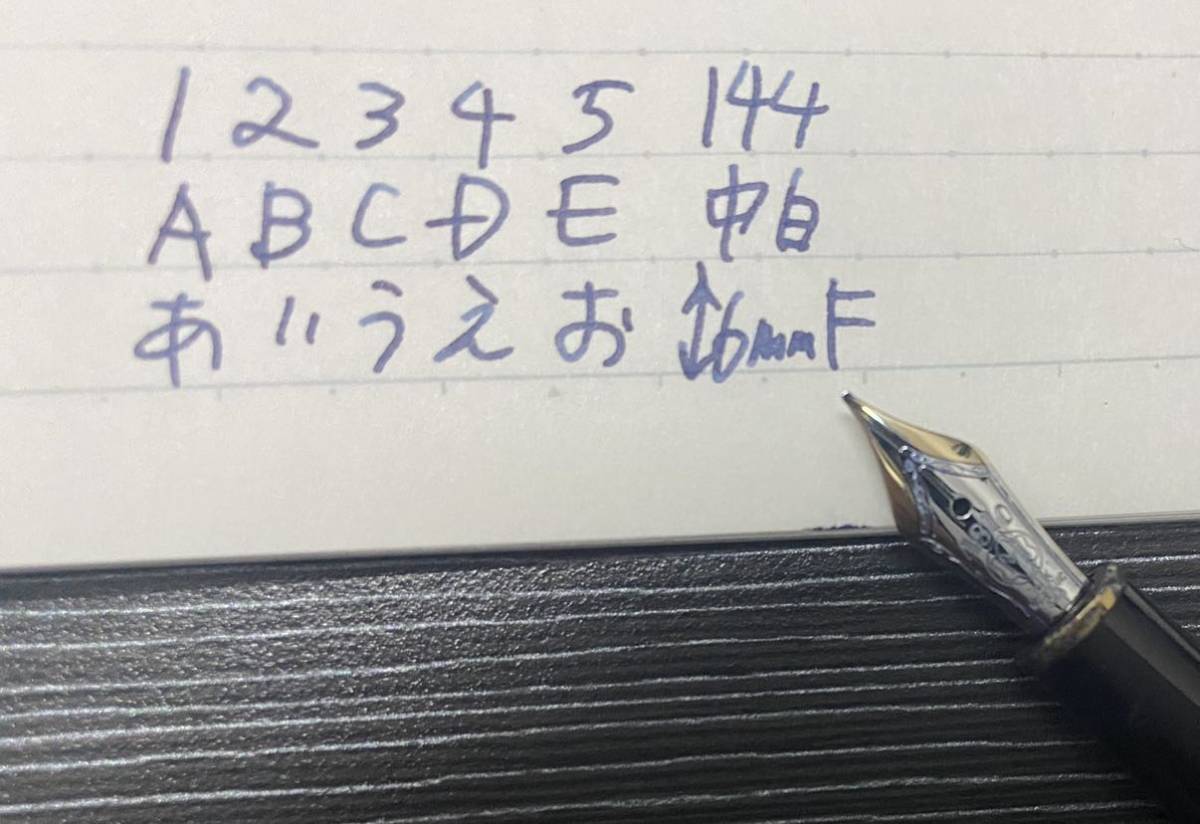 1 2 3 4 5 144
A B C D E 中白
あ い う え お ↕6mm F